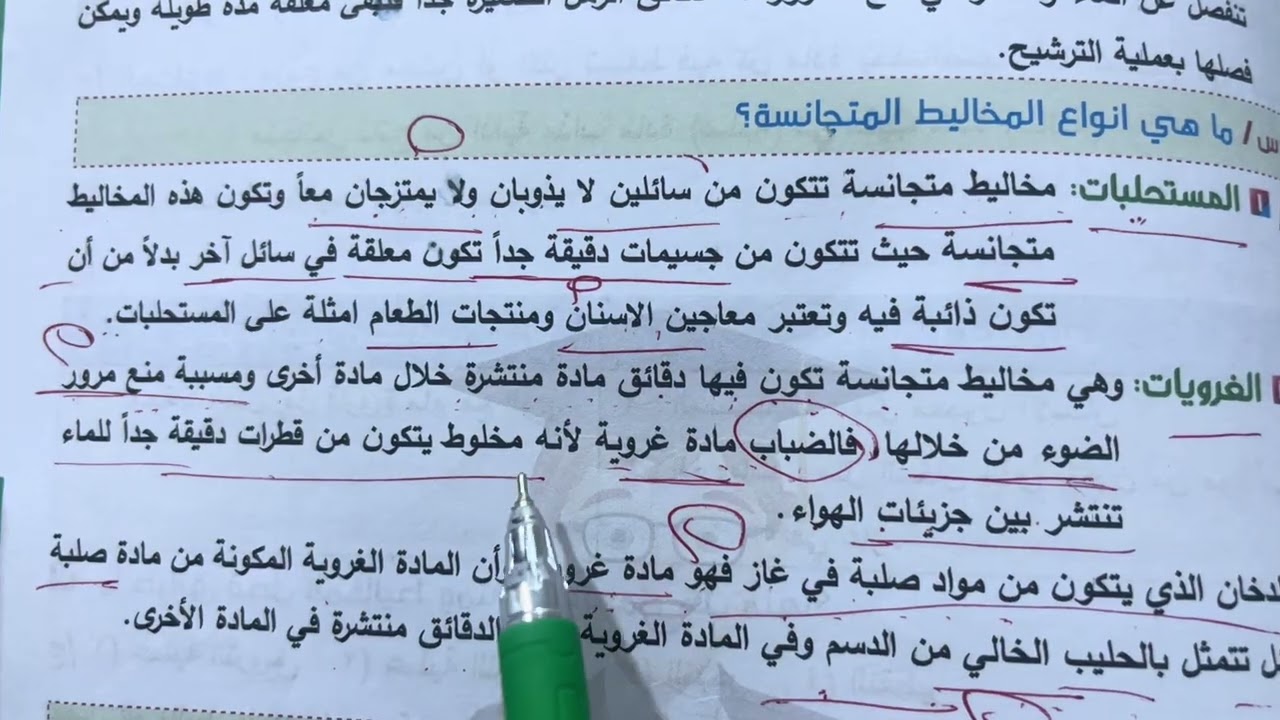 تنفصل عن
جداً فتبقى معلقة مدة طويلة ويمكن
فصلها بعملية الترشيح.
س/ ما هي انواع المخاليط المتجانسة؟
المستحلبات: مخاليط متجانسة تتكون من سائلين لا يذوبان ولا يمتزجان معاً وتكون هذه المخاليط
متجانسة حيث تتكون من جسيمات دقيقة جداً تكون معلقة في سائل آخر بدلاً من أن
تكون ذائبة فيه وتعتبر معاجين الاسنان ومنتجات الطعام امثلة على المستحلبات.
الغرويات: وهي مخاليط متجانسة تكون فيها دقائق مادة منتشرة خلال مادة أخرى ومسببة منع مرور
الضوء من خلالها، فالضباب مادة غروية لأنه مخلوط يتكون من قطرات دقيقة جداً للماء
تنتشر بين جزيئات الهواء.
الذي يتكون من مواد صلبة في غاز فهو مادة أن المادة الغروية المكونة من مادة صلبة
تتمثل بالحليب الخالي من الدسم وفي المادة الغروية الدقائق منتشرة في المادة الأخرى.